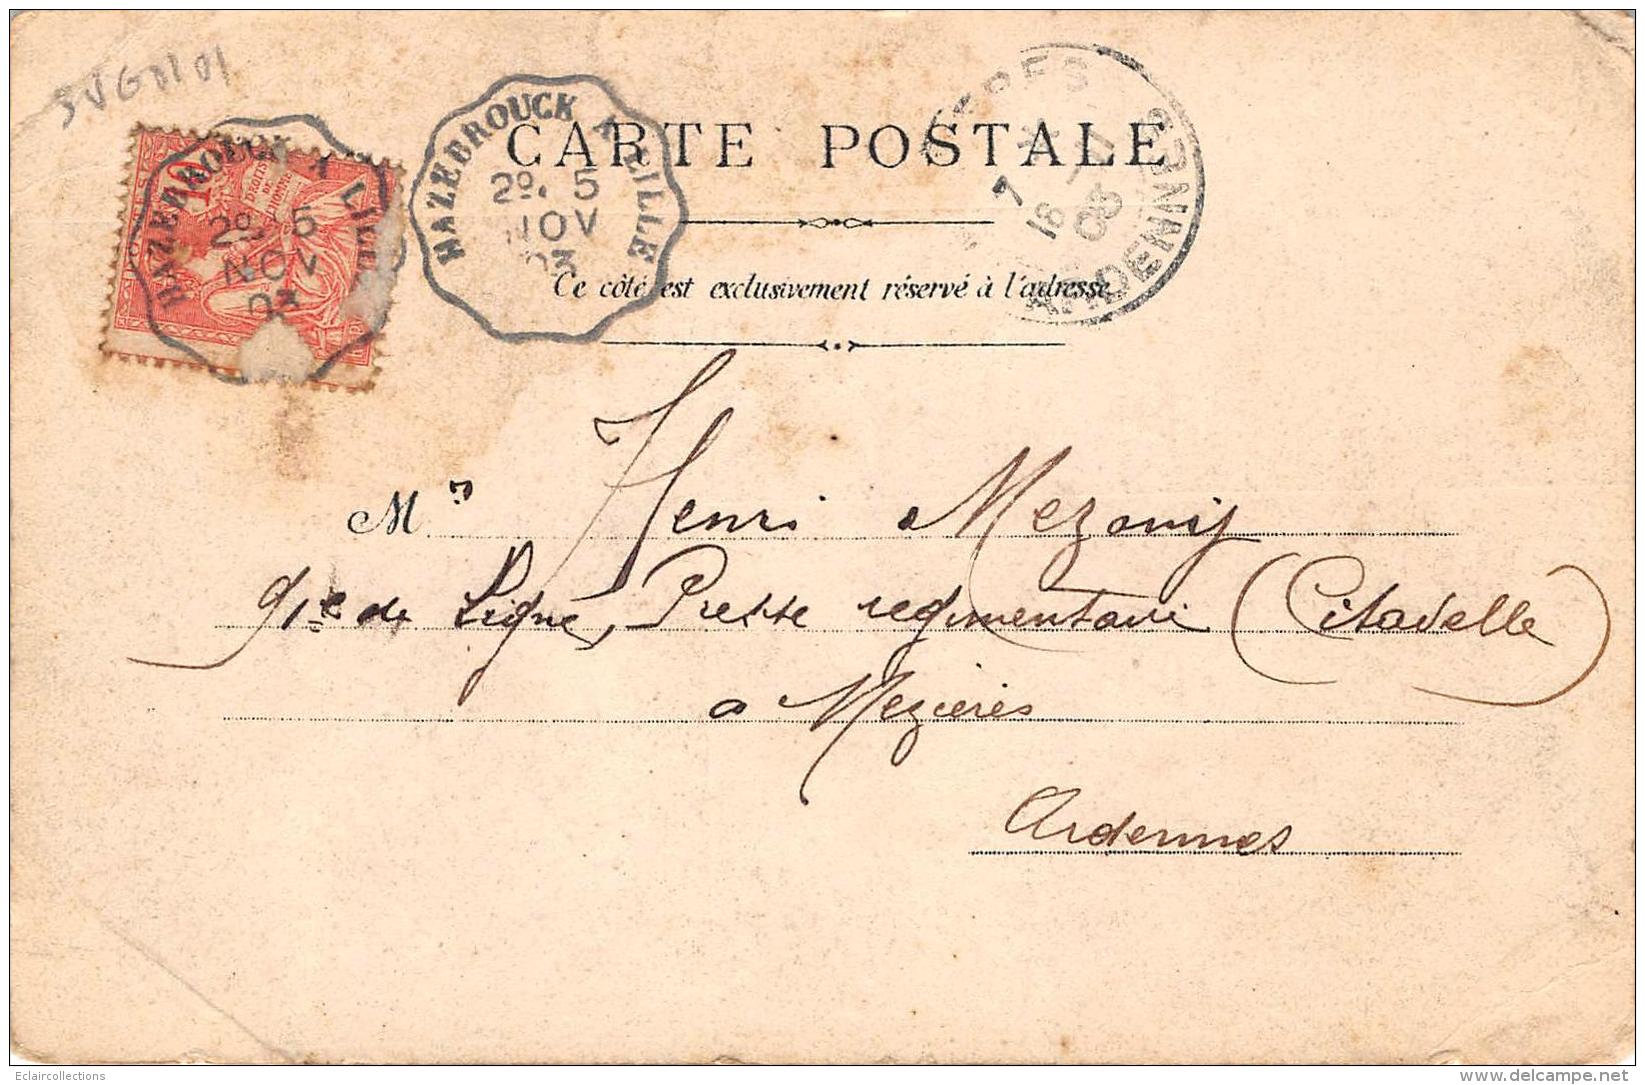 HAZEBROUCK A LILLE
2º. 5
NOV
03
HAZEBROUCK A LILLE
2º. 5
NOV
03
10
DROITS
DE
L'HOMME
CARTE POSTALE
ARDENNES
7
18
03
Ce côté est exclusivement réservé à l'adresse
Mr Henri Mezonij
91e de Ligne, Presse regimentaire (Citadelle)
a Mezieres
Ardennes
Eclaircollections
www.delcampe.net